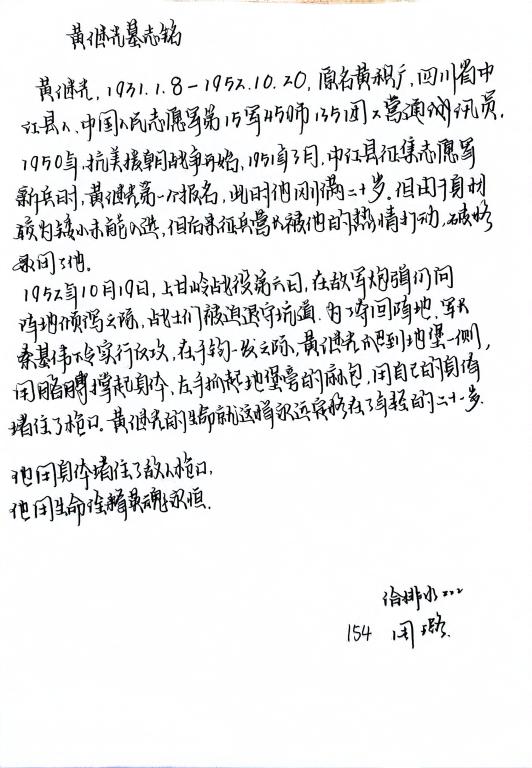 黄继光墓志铭
黄继光，1931.1.8-1952.10.20，原名黄积广，四川省中
江县人、中国人民志愿军第15军45师135团2营通讯员。
1950年，抗美援朝战争开始，1951年3月，中江县征集志愿军
新兵时，黄继光第一个报名，此时他刚满二十岁。但由于身材
较为矮小未能入选，但后来征兵营长被他的热情打动，破格
录用了他。
1952年10月19日，上甘岭战役第六日，在敌军炮弹们向
阵地倾泻之际，战士们被迫退守坑道，为了夺回阵地，军长
秦基伟下令实行反攻，在千钧一发之际，黄继光爬到地堡一侧，
用胳膊撑起身体，左手抓起地堡旁的麻包，用自己的身体
堵住了枪口。黄继光的生命就这样永远定格在了年轻的二十一岁.
他用身体堵住了敌人枪口，
他用生命诠释灵魂永恒.
给排水222
154 周璐.